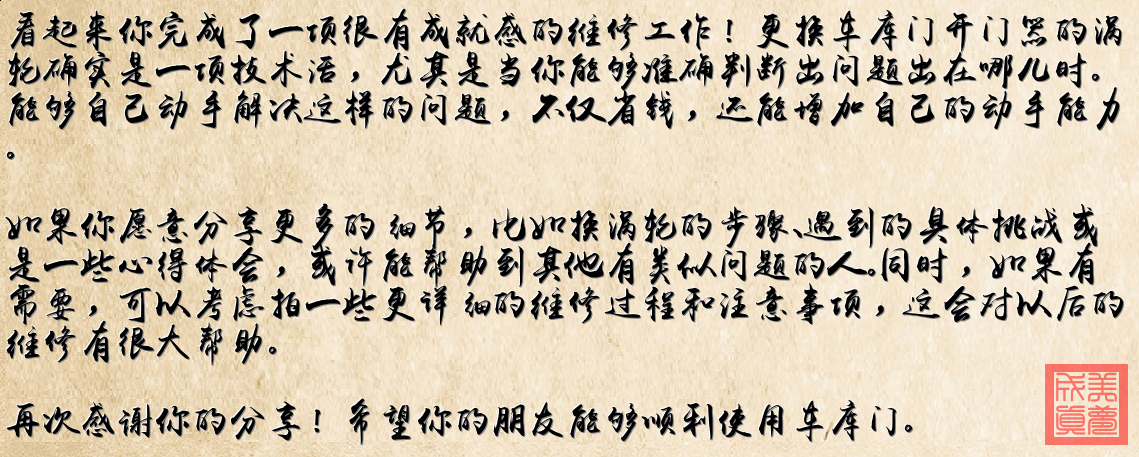 看起来你完成了一项很有成就感的维修工作！更换车库门开门器的涡
轮确实是一项技术活，尤其是当你能够准确判断出问题出在哪儿时。
能够自己动手解决这样的问题，不仅省钱，还能增加自己的动手能力
。
如果你愿意分享更多的细节，比如换涡轮的步骤、遇到的具体挑战或
是一些心得体会，或许能帮助到其他有类似问题的人。同时，如果有
需要，可以考虑拍一些更详细的维修过程和注意事项，这会对以后的
维修有很大帮助。
再次感谢你的分享！希望你的朋友能够顺利使用车库门。
美梦
成真